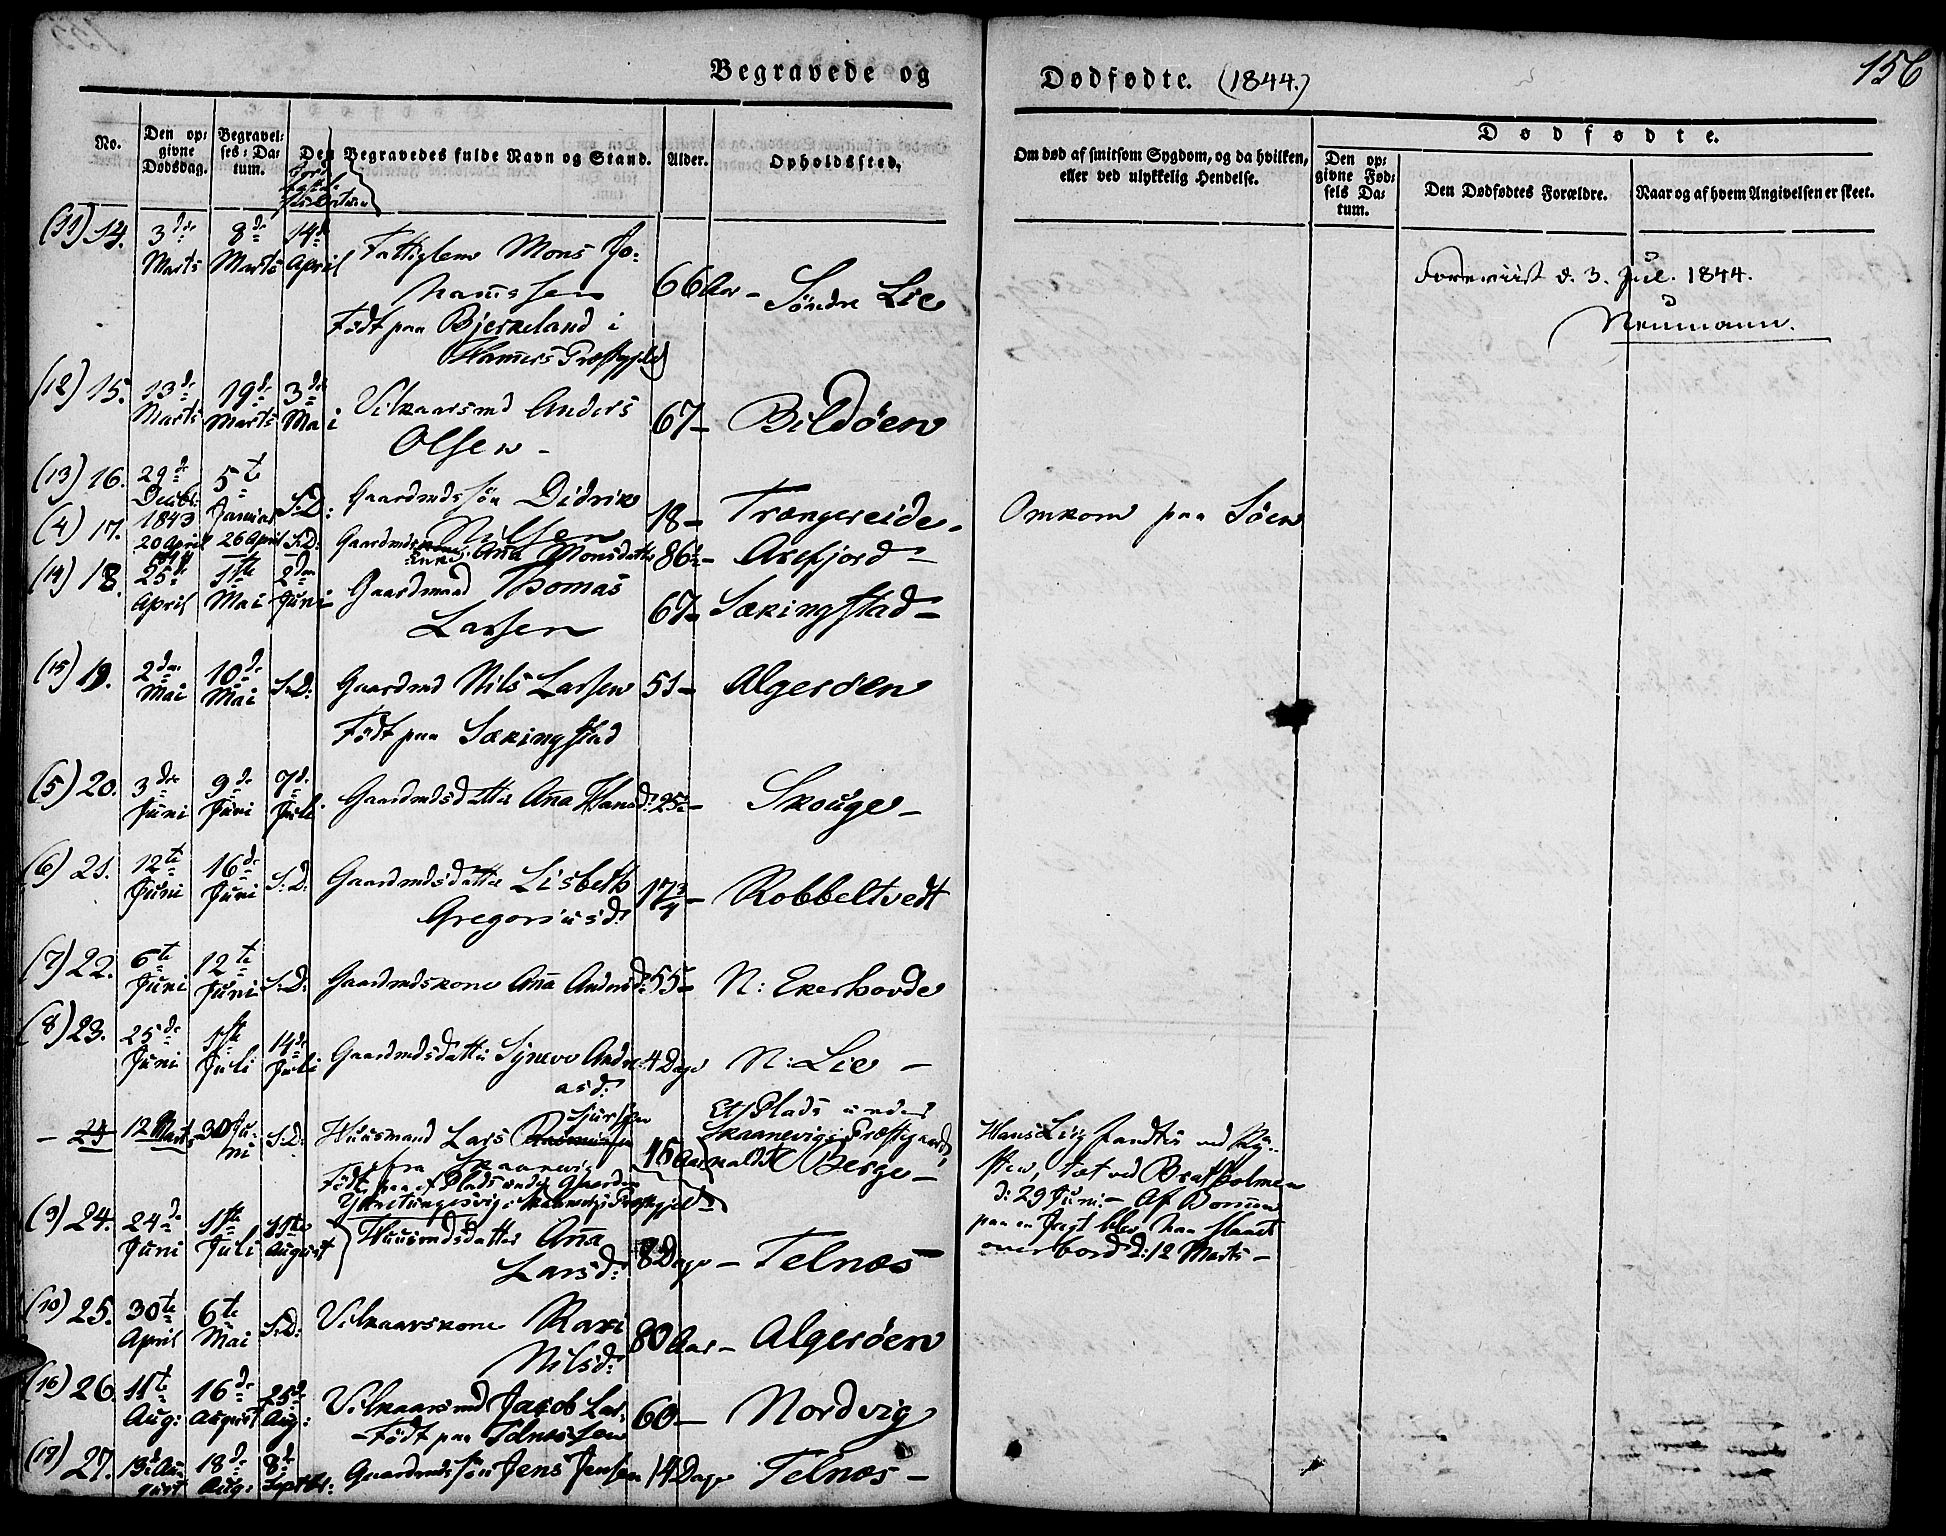 Begravede og
Dødfødte. (1844.)
156
No.
Den op-
givne
Dødsdag.
Begravel-
ses-Da-
tum.
Den Begravedes fulde Navn og Stand.
Alder.
Opholdssted.
Om død af smitsom Sygdom, og da hvilken,
eller ved ulykkelig Hendelse.
Dødfødte.
Den op-
givne Fød-
sels Da-
tum.
Den Dødfødtes Forældre.
Naar og af hvem Angivelsen er skeet.
Foreviist d. 3. Jul. 1844.
Neumann.
(11) 14. 3die Marts 8de Marts 14de April Fattiglem Mons Jo-
hannssen 66 Aar - Søndre Lie
Født paa Bjerkeland i
Hamers Præstgjeld)
(12) 15. 13de Marts 19de Marts 3die Mai Vilkaarsmd Anders
Olsen - 67 - Bildøen
(13) 16. 29de Decbr: 1843 5te Januar S:D: Gaardmdssøn Didrik
Nilsen 18 - Trængereide - Omkom paa Søen
(4) 17. 20 April 26 April S:D: Gaardmds Enke Aña Monsdatter 86½ - Arefjord -
(14) 18. 25de April 1ste Mai 2den Juni Gaardmand Thomas
Larsen 67 - Sækingstad -
(15) 19. 2den Mai 10de Mai S:D: Gaardmd Nils Larsen 51 - Algerøen
Født paa Sækingstad
(5) 20. 3die Juni 9de Juni 7de Juli Gaardmdsdatter Aña Hansd: 25 - Skouge -
(6) 21. 12te Juni 16de Juni S:D: Gaardmdsdatter Lisbeth
Gregoriusd: 17¾ - Kobbeltvedt
(7) 22. 6te Juni 12te Juni S:D: Gaardmdskone Aña Andersd: 55 - N: Ekerhovde
(8) 23. 25de Juni 1ste Juli 14de Juli Gaardmdsdatter Synneve Andre-
asd: 4 Dage N: Lie -
- 12 Marts 30 Juni S:D: Huusmand Lars Sjursen
fra Skaanevig
Født paa et Plads under Gaarden
i Skaanevigs Præstgjeld -
Et Plads under
Skaanevigs Præstegaard,
kaldt Berge -
Hans Liig fandtes ved Ky-
sten, tæt ved Bratholmen
d: 29 Juni - Af Bommen
paa en Jægt blev han slaaet
overbord d: 12 Marts -
(9) 24. 24de Juni 1ste Juli 11te August Huusmdsdatter Aña
Larsd: 8 Dage - Telnæs
(10) 25. 30te April 6te Mai S:D: Vilkaarskone Kari
Nilsd: 80 Aar - Algerøen
(16) 26. 11te Aug: 16de August 25de Aug: Vilkaarsmd Jacob Lar-
sen 60 - Nordvig
- Født paa Tølnes
(17) 27. 13de August 18de Aug: 8de Septbr: Gaardmdssøn Jens Jensen 14 Dage Telnæs -